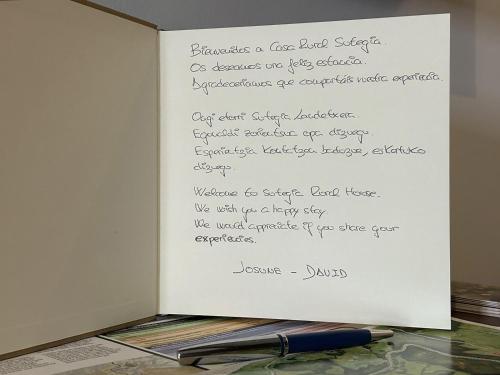 Bienvenidos a Casa Rural Sutegia.
Os deseamos una feliz estancia.
Agradeceríamos que compartáis vuestra experiencia.
Ongi etorri Sutegia Landetxera.
Egonaldi zoriontsua opa dizuegu.
Esperientzia kontatzea baduzue, eskertuko
dizuegu.
Welcome to Sutegia Rural House.
We wish you a happy stay.
We would appreciate if you share your
experiencies.
JOSUNE - DAVID